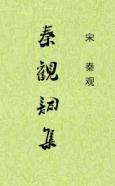 宋 秦观
秦觀詞集